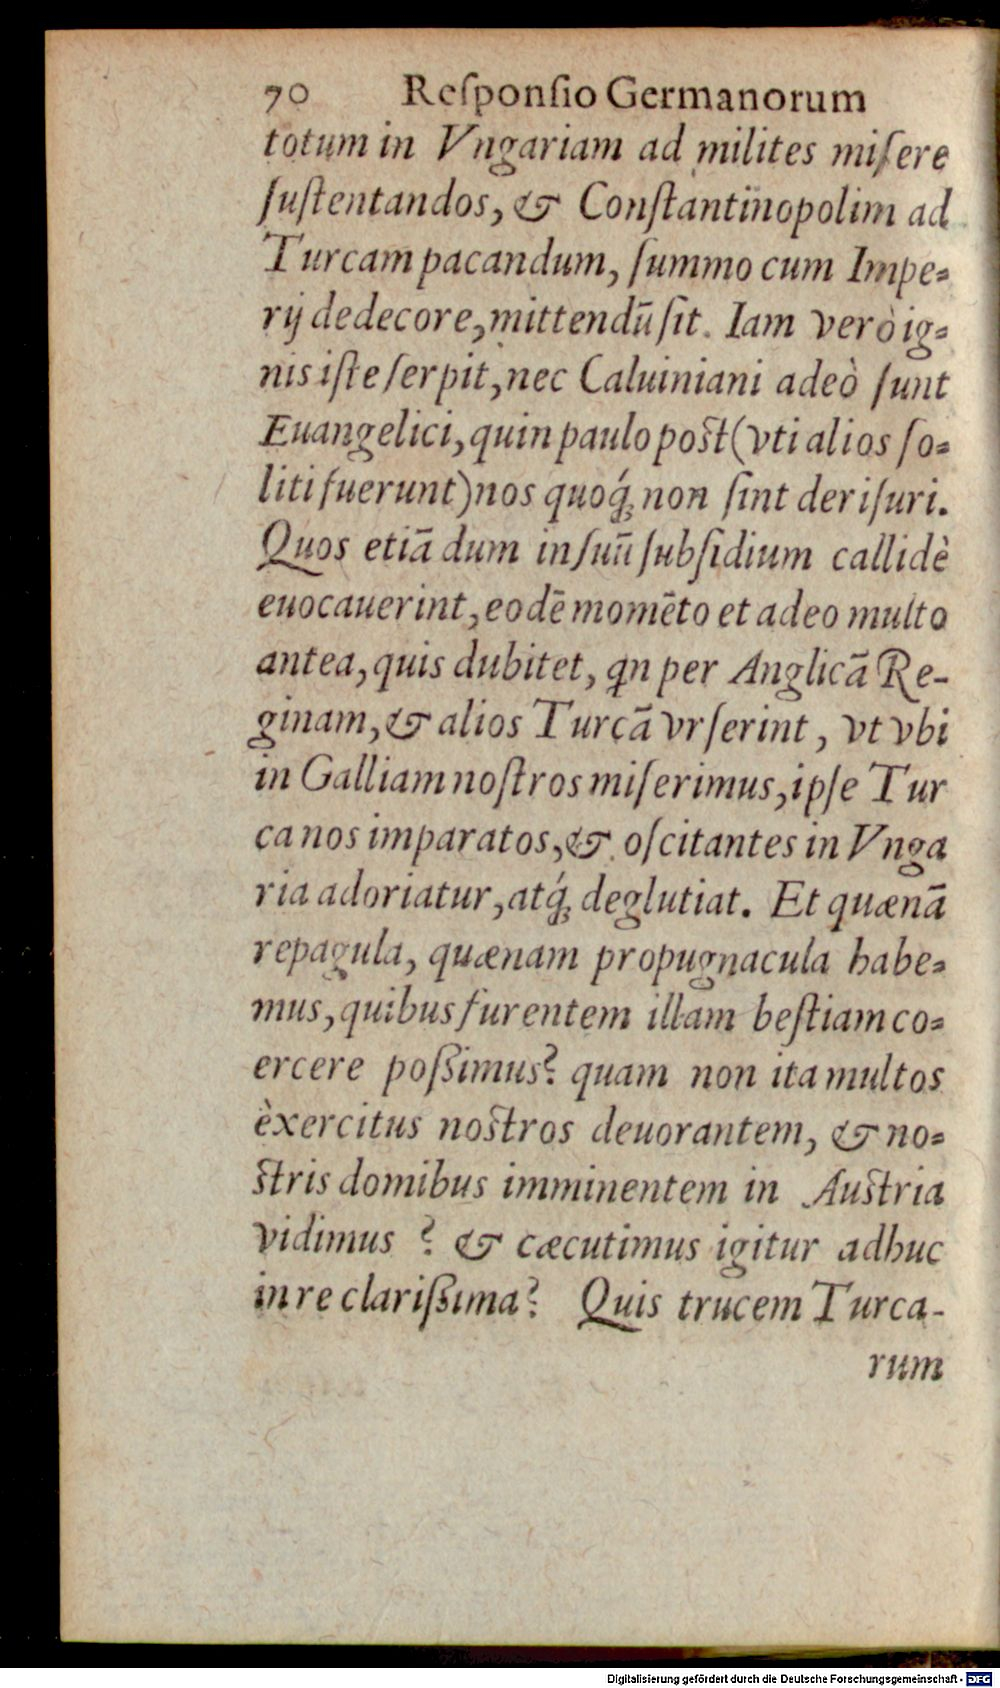 70 Reſponſio Germanorum
totum in Vngariam ad milites miſere
ſuſtentandos, & Conſtantinopolim ad
Turcam pacandum, ſummo cum Impe=
rij dedecore, mittendū ſit. Iam verò ig=
nis iſte ſerpit, nec Caluiniani adeò ſunt
Euangelici, quin paulo poſt (vti alios ſo=
liti fuerunt) nos quoq́; non ſint deriſuri.
Quos etiā dum in ſuū ſubſidium callidè
euocauerint, eodē momēto et adeo multo
antea, quis dubitet, qn per Anglicā Re-
ginam, & alios Turcā vrſerint, vt vbi
in Galliam noſtros miſerimus, ipſe Tur
ca nos imparatos, & oſcitantes in Vnga
ria adoriatur, atq́; deglutiat. Et quænā
repagula, quænam propugnacula habe=
mus, quibus furentem illam beſtiam co=
ercere poßimus? quam non ita multos
èxercitus noſtros deuorantem, & no=
ſtris domibus imminentem in Auſtria
vidimus ? & cæcutimus igitur adhuc
in re clarißima? Quis trucem Turca-
rum
Digitalisierung gefördert durch die Deutsche Forschungsgemeinschaft - DFG